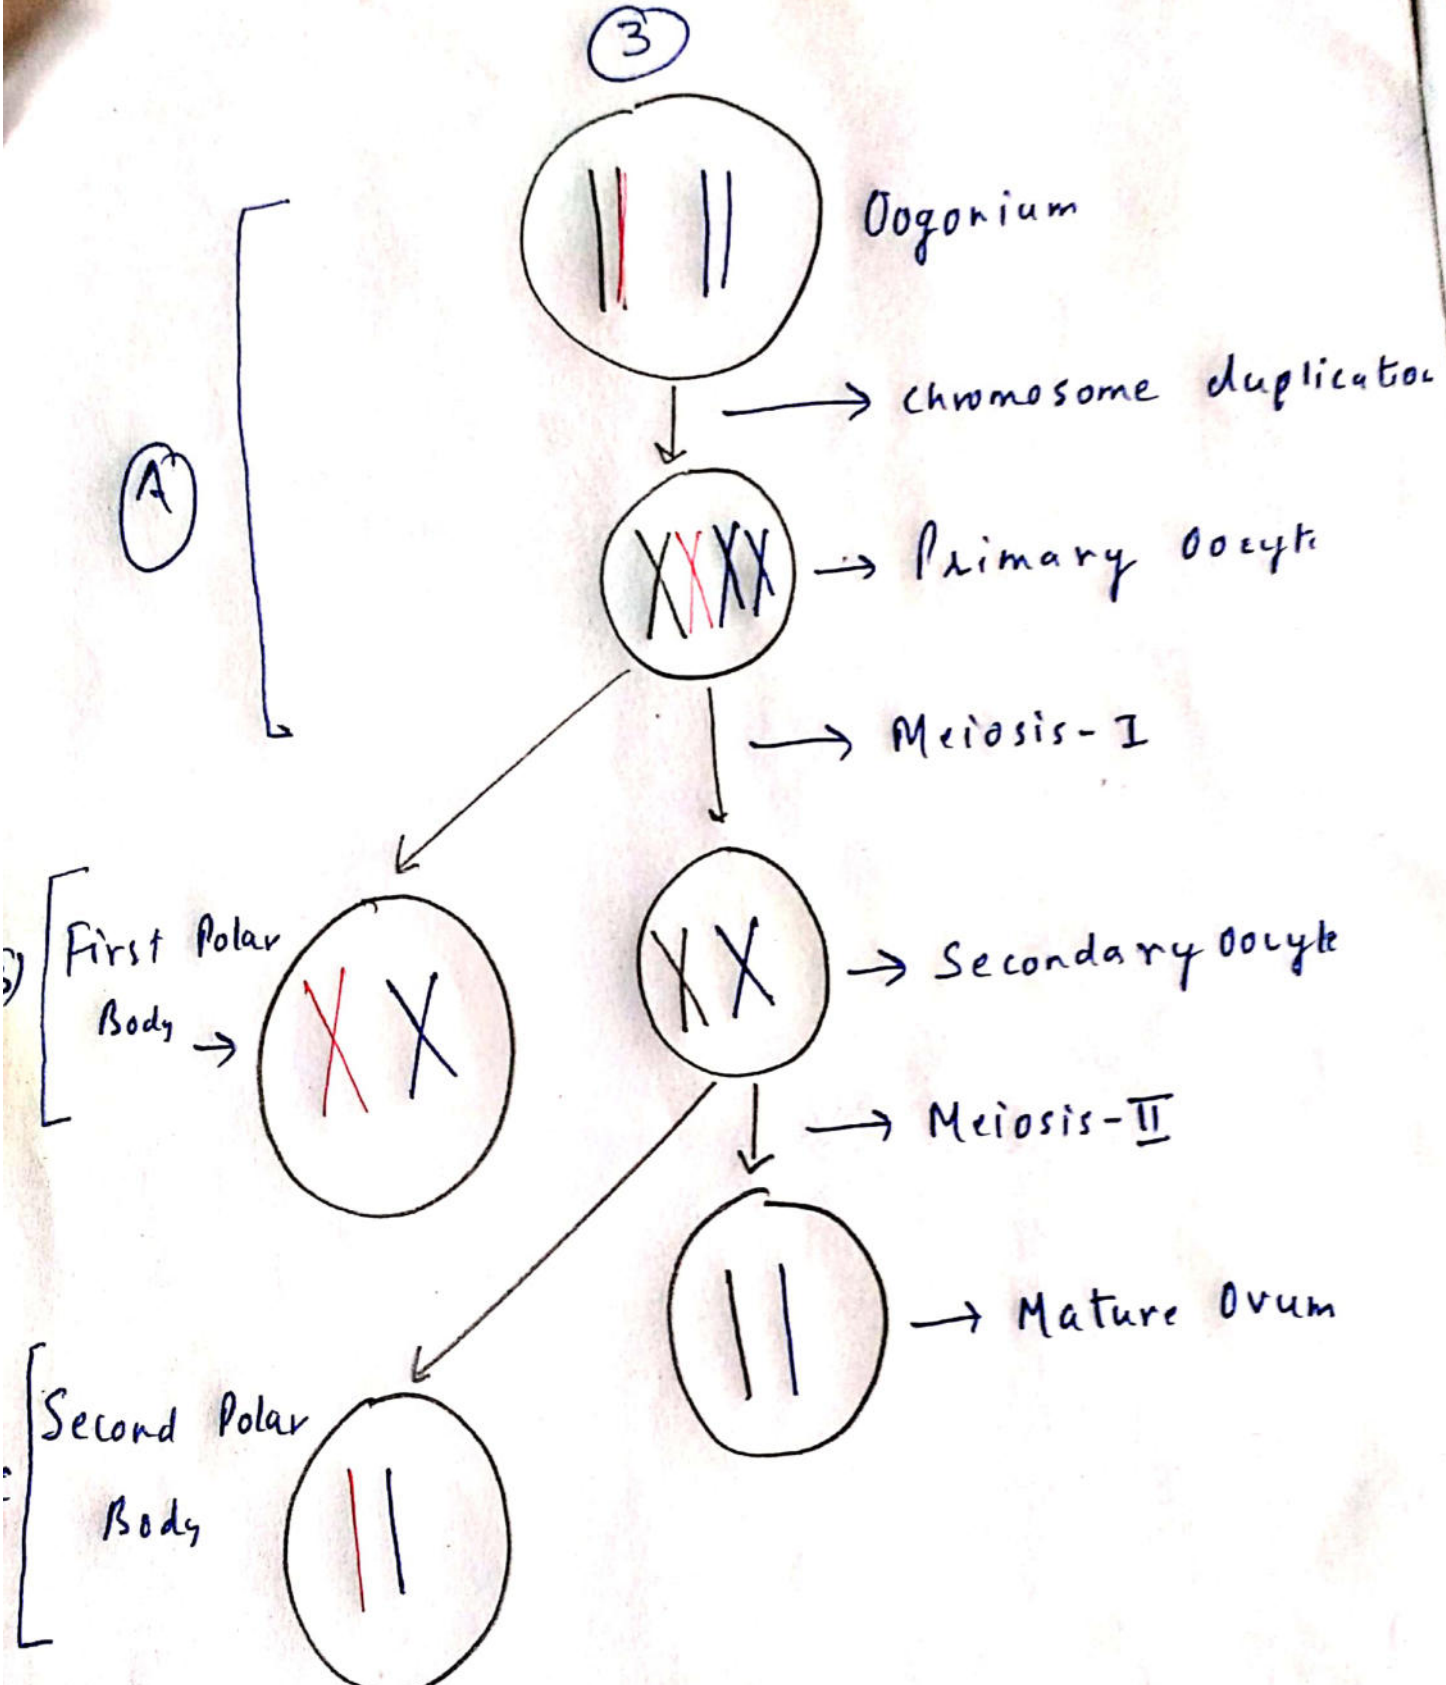 3
Oogonium
chromosome duplication
A
Primary Oocyte
Meiosis-I
First Polar
Body
Secondary Oocyte
Meiosis-II
Mature Ovum
Second Polar
Body